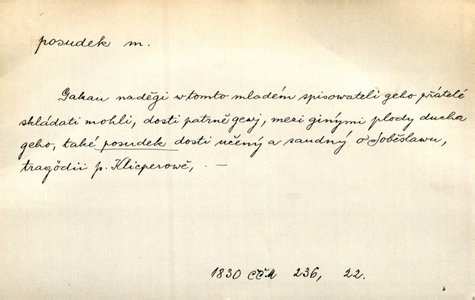 posudek m.
Gakau naděgi w tomto mladém spisowateli geho přátelé
skládati mohli, dosti patrně gewj, mezi ginými plody ducha
geho, také posudek dosti učený a saudný o Soběslawu,
tragödii p. Klicperowě, . —
1830 CČM 236, 22.